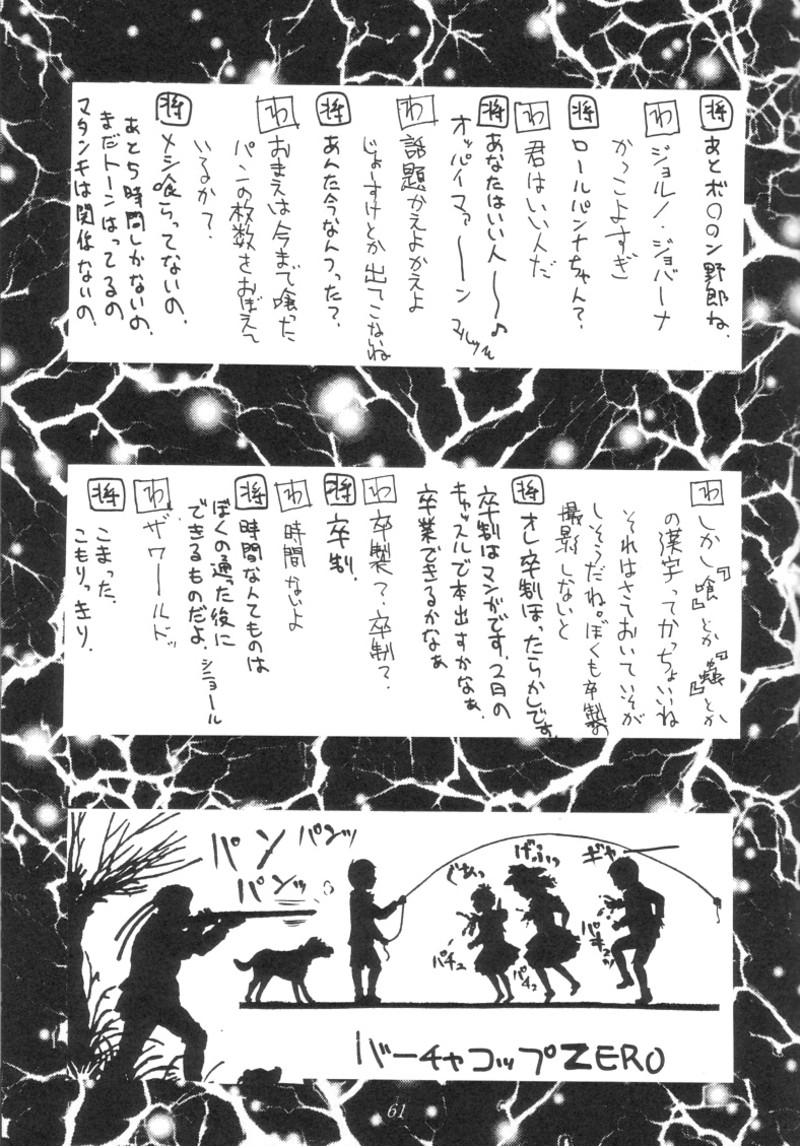 将 あとボ○○ン野郎ね.
わ ジョルノ・ジョバーナ
かっこよすぎ
将 ロールパンナちゃん?
わ 君はいい人だ
将 あなたはいい人〜〜♪
オッパイマァ〜〜ン
わ 話題かえよかえよ
じょーすけとか出てこないね
将 あんた今なんつった?
わ おまえは今まで喰った
パンの枚数をおぼえて
いるか?
将 メシ喰らってないの.
あと5時間しかないの.
まだトーンはってるの
マタンキは関係ないの.
わ しかし『喰』とか『蟲』とか
の漢字ってかっちょいいね
それはさておいていそが
しそうだね。ぼくも卒製の
撮影しないと
将 オレ卒制ほったらかしです.
卒制はマンガです. 2日の
キャッスルで本出すかなぁ.
卒業できるかなぁ
わ 卒製?. 卒制?.
将 卒制.
わ 時間ないよ
将 時間なんてものは
ぼくの通った後に
できるものだよ. シニョール
わ ザワールドッ
将 こまった.
こもりっきり.
パン パンッ
パンッ
ぐあっ
げふっ
ギャー
パチュ
パチュ
バーチャコップZERO
61